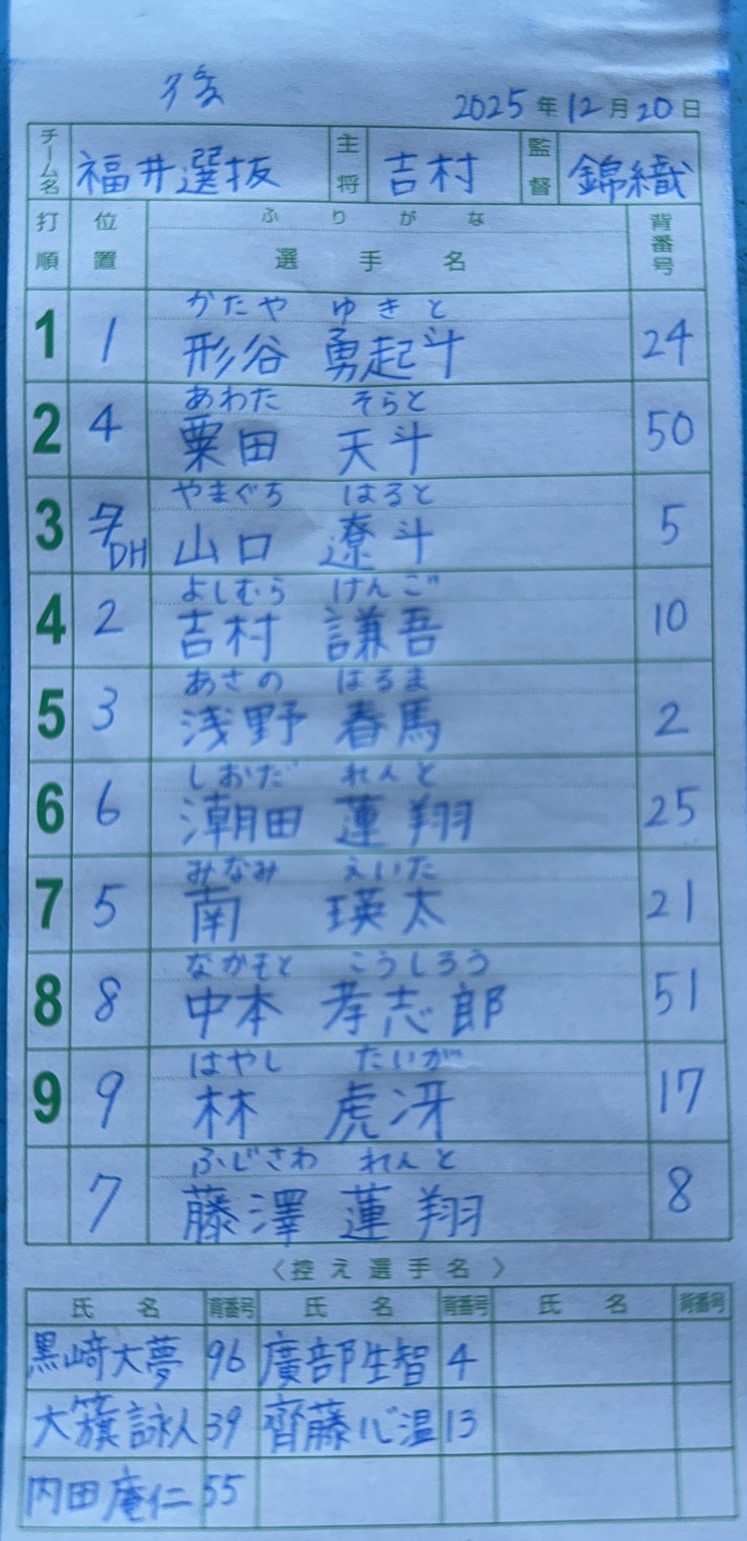 後
2025年12月20日
チーム名 福井選抜 主将 吉村 監督 錦織
打順 位置 ふりがな 選手名 背番号
かたや ゆきと
1 1 形谷 勇起斗 24
あわた そらと
2 4 粟田 天斗 50
やまぐち はると
3 DH 山口 遼斗 5
よしむら けんご
4 2 吉村 謙吾 10
あさの はるま
5 3 浅野 春馬 2
しおだ れんと
6 6 潮田 蓮翔 25
みなみ えいた
7 5 南 瑛太 21
なかもと こうしろう
8 8 中本 孝志郎 51
はやし たいが
9 9 林 虎冴 17
ふじさわ れんと
7 藤澤 蓮翔 8
〈控え選手名〉
氏名 背番号 氏名 背番号 氏名 背番号
黒崎大夢 96 廣部生智 4
大籏詠人 39 齊藤心温 13
内田庵仁 55